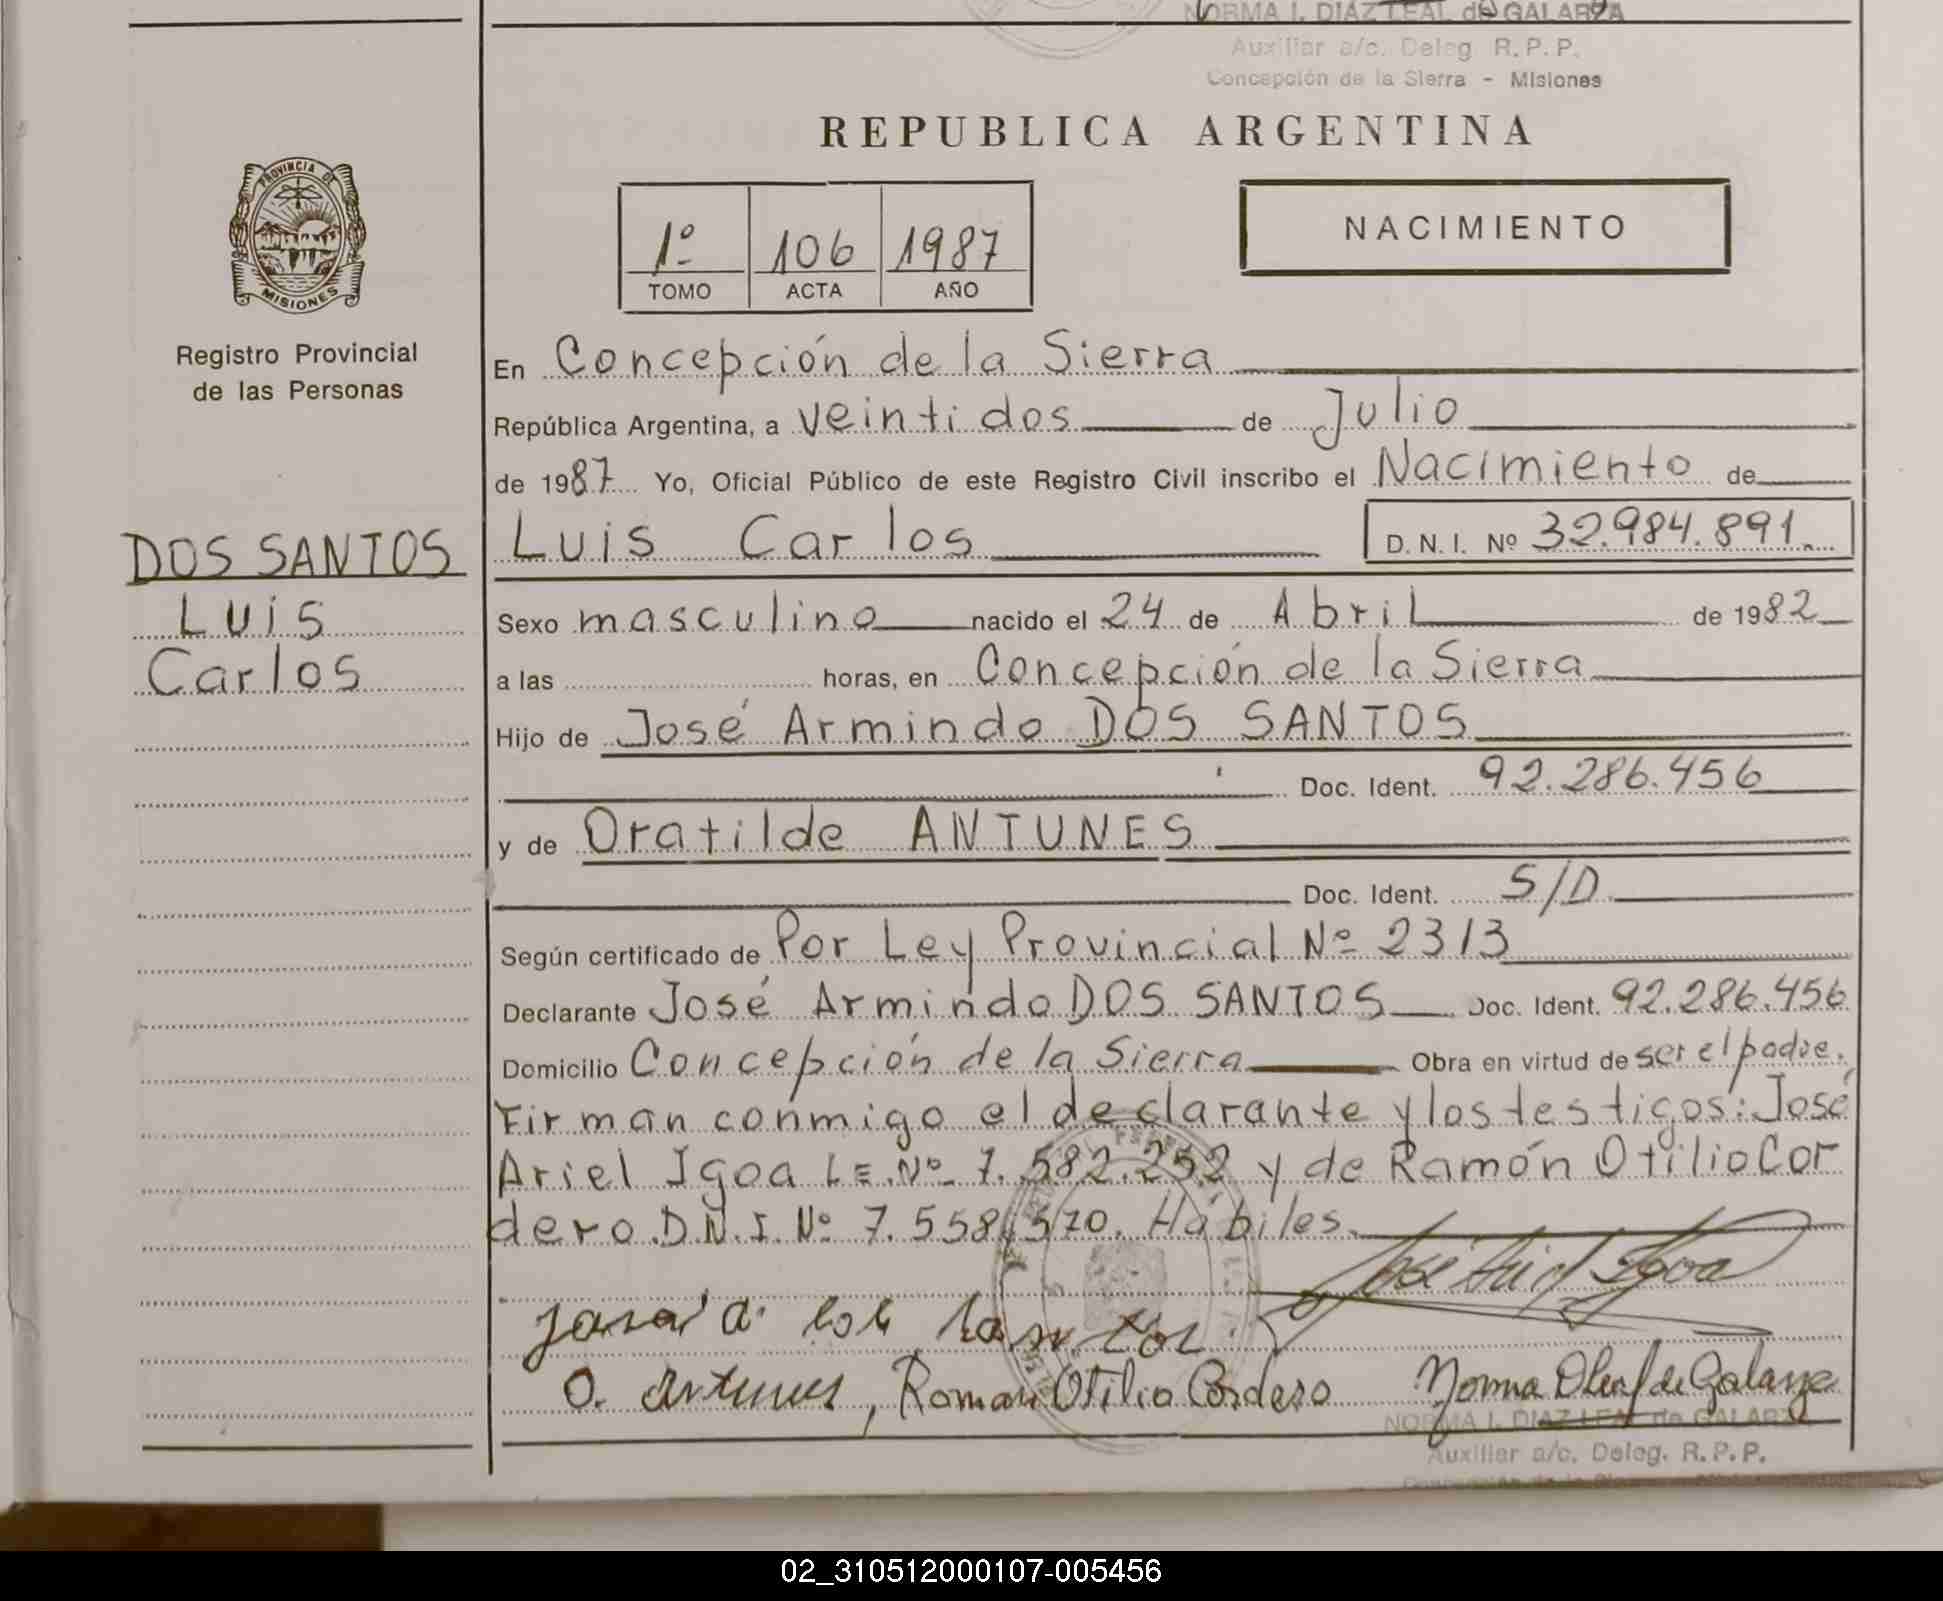 NORMA I. DIAZ LEAL de GALARZA
Auxiliar a/c. Deleg R. P. P.
Concepción de la Sierra - Misiones
REPUBLICA ARGENTINA
PROVINCIA DE
MISIONES
1º 106 1987
TOMO ACTA AÑO
NACIMIENTO
Registro Provincial
de las Personas
En Concepción de la Sierra
República Argentina, a veintidos de Julio
de 1987 Yo, Oficial Público de este Registro Civil inscribo el Nacimiento de
DOS SANTOS
Luis
Carlos
Luis Carlos D. N. I. Nº 32.984.891.
Sexo masculino nacido el 24 de Abril de 1982
a las horas, en Concepción de la Sierra
Hijo de José Armindo DOS SANTOS
Doc. Ident. 92.286.456
y de Oratilde ANTUNES
Doc. Ident. S/D
Según certificado de Por Ley Provincial Nº 2313
Declarante José Armindo DOS SANTOS Doc. Ident. 92.286.456
Domicilio Concepción de la Sierra Obra en virtud de ser el padre.
Firman conmigo el declarante y los testigos: José
Ariel Igoa L.E. Nº 7.582.252 y de Ramón Otilio Cor
dero D.N.I. Nº 7.558.570. Hábiles.
José Ariel Igoa
O. Antunes, Roman Otilio Cordero Norma Diaz de Galarza
NORMA I. DIAZ LEAL de GALARZA
Auxiliar a/c. Deleg. R. P. P.
02_310512000107-005456